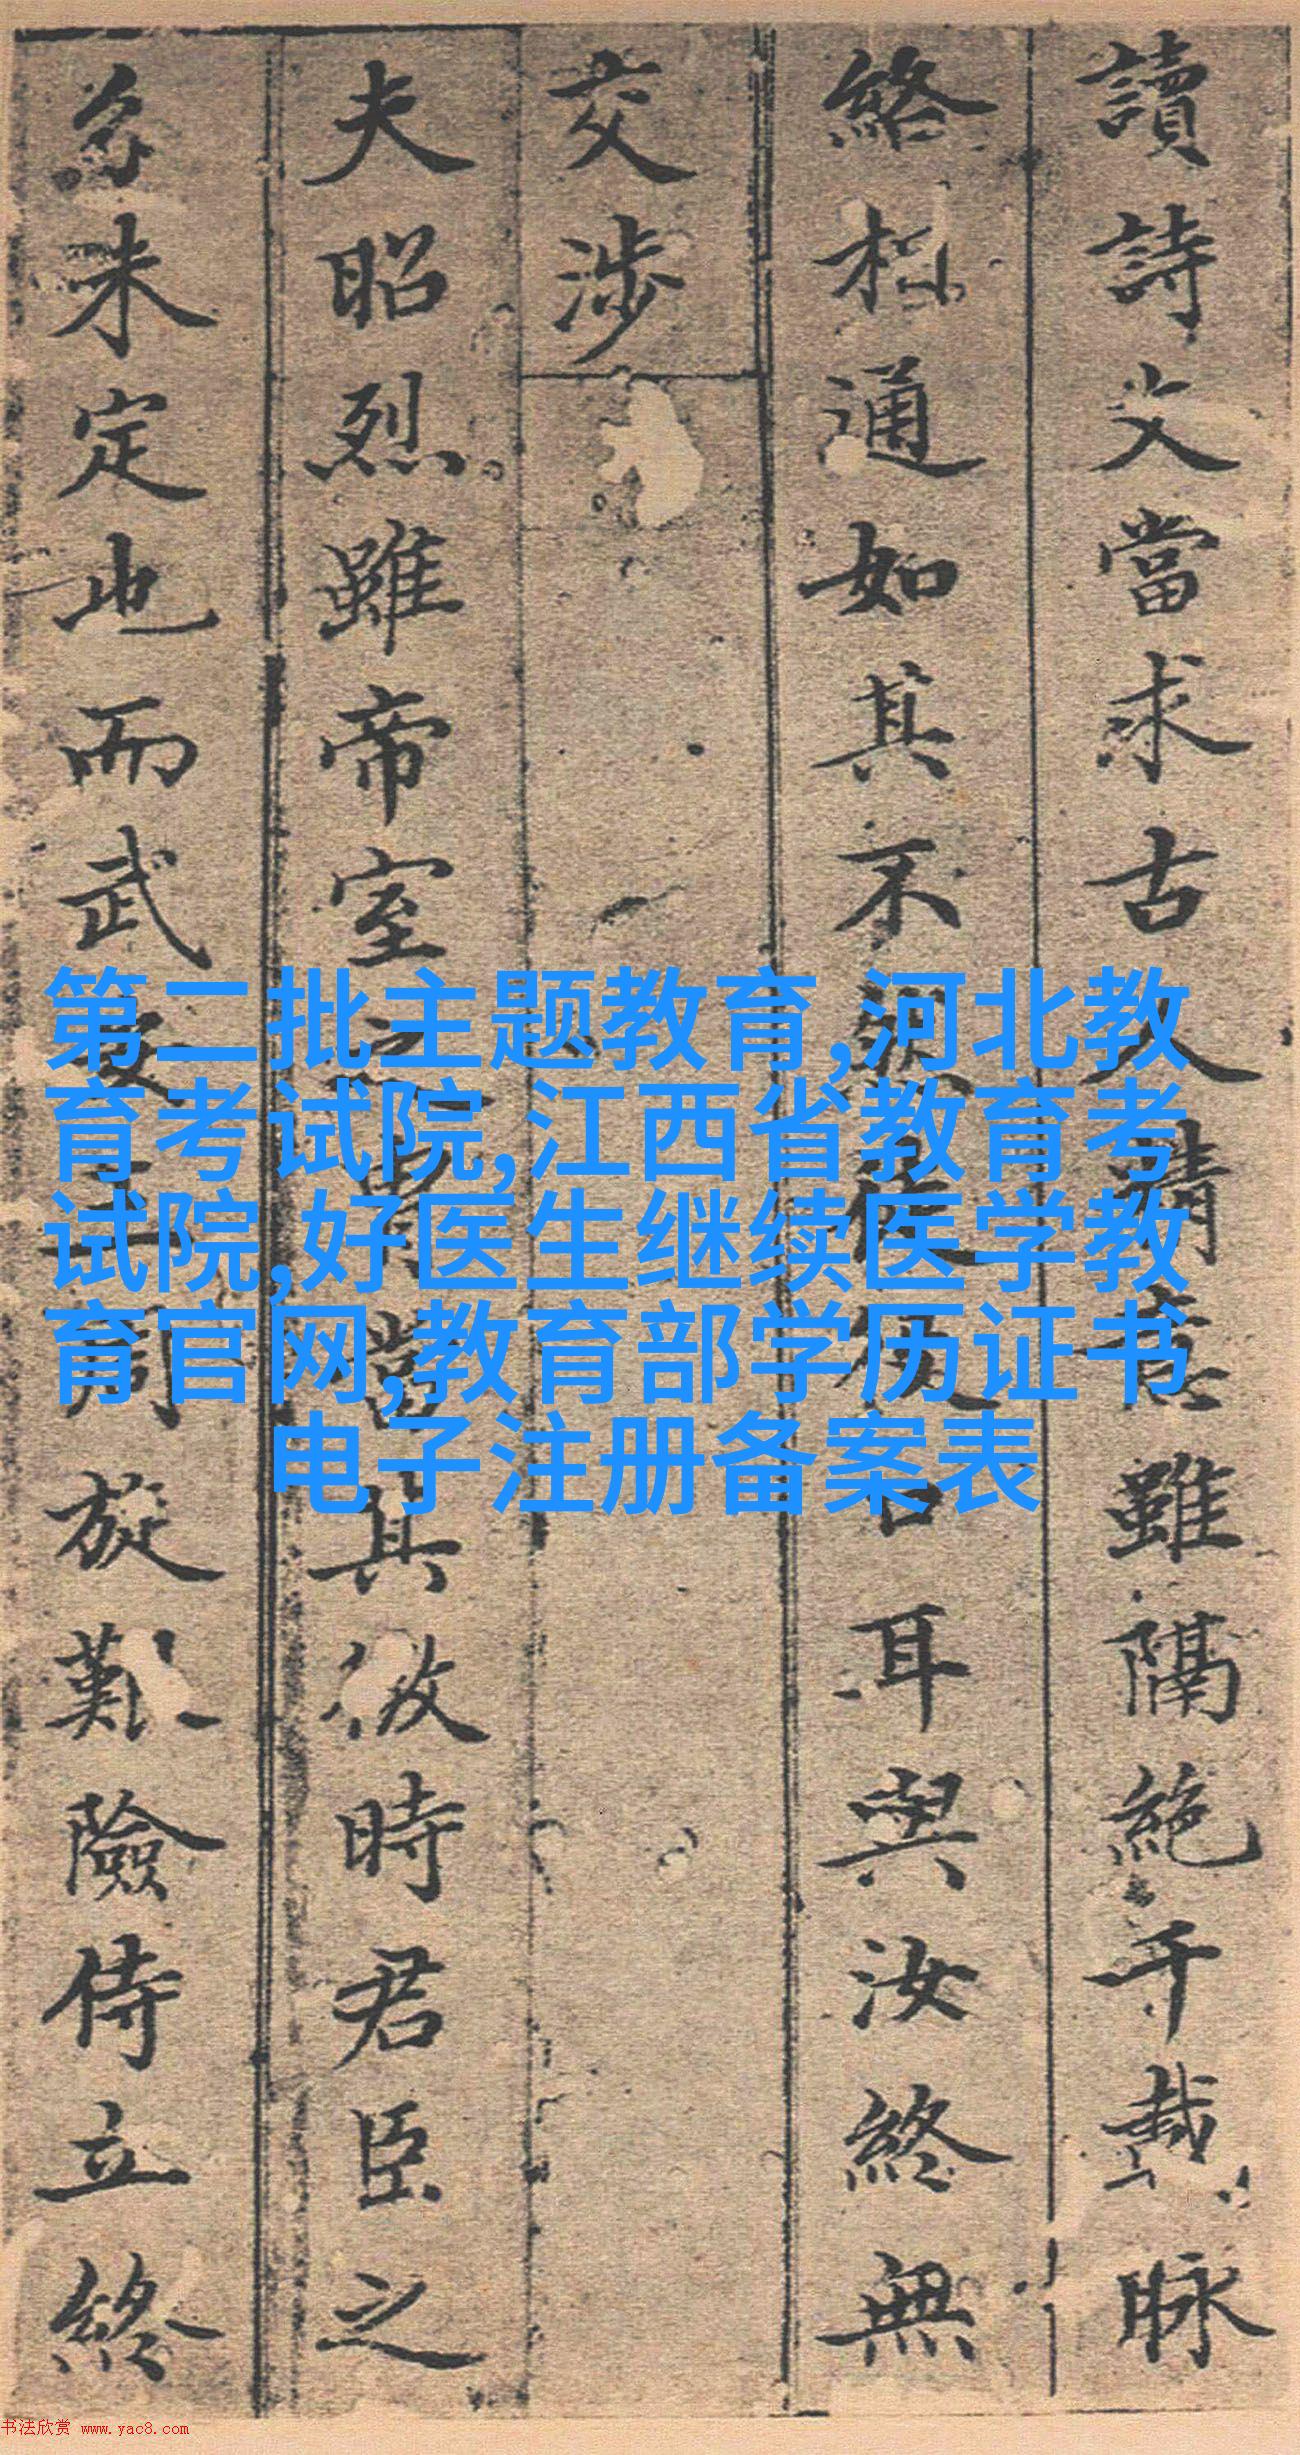 讀詩文當求古人情意雖隔絶千載脉
絡相通如其不口耳與汝終無
交涉
夫昭烈雖帝室之胄當其微時君臣之
未定也而武周旋艱險侍立終
第二批主题教育,河北教
育考试院,江西省教育考
试院,好医生继续医学教
育官网,教育部学历证书
电子注册备案表
书法欣赏 www.yac8.com